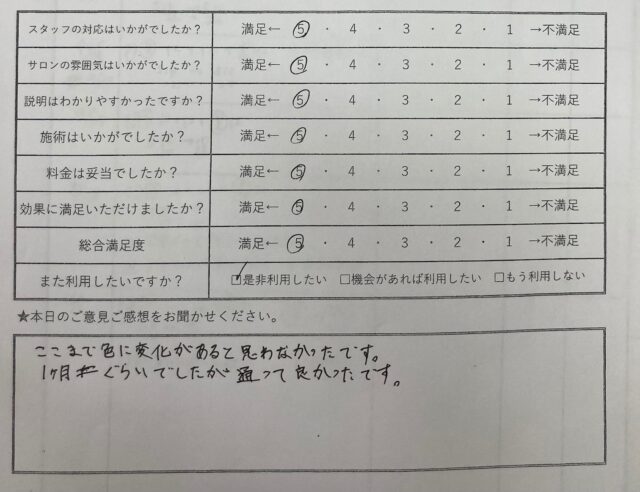 スタッフの対応はいかがでしたか？ 満足← 5 ・ 4 ・ 3 ・ 2 ・ 1 →不満足
サロンの雰囲気はいかがでしたか？ 満足← 5 ・ 4 ・ 3 ・ 2 ・ 1 →不満足
説明はわかりやすかったですか？ 満足← 5 ・ 4 ・ 3 ・ 2 ・ 1 →不満足
施術はいかがでしたか？ 満足← 5 ・ 4 ・ 3 ・ 2 ・ 1 →不満足
料金は妥当でしたか？ 満足← 5 ・ 4 ・ 3 ・ 2 ・ 1 →不満足
効果に満足いただけましたか？ 満足← 5 ・ 4 ・ 3 ・ 2 ・ 1 →不満足
総合満足度 満足← 5 ・ 4 ・ 3 ・ 2 ・ 1 →不満足
また利用したいですか？ ☑是非利用したい □機会があれば利用したい □もう利用しない
★本日のご意見ご感想をお聞かせください。
ここまで色に変化があると思わなかったです。
1ヶ月ぐらいでしたが通って良かったです。